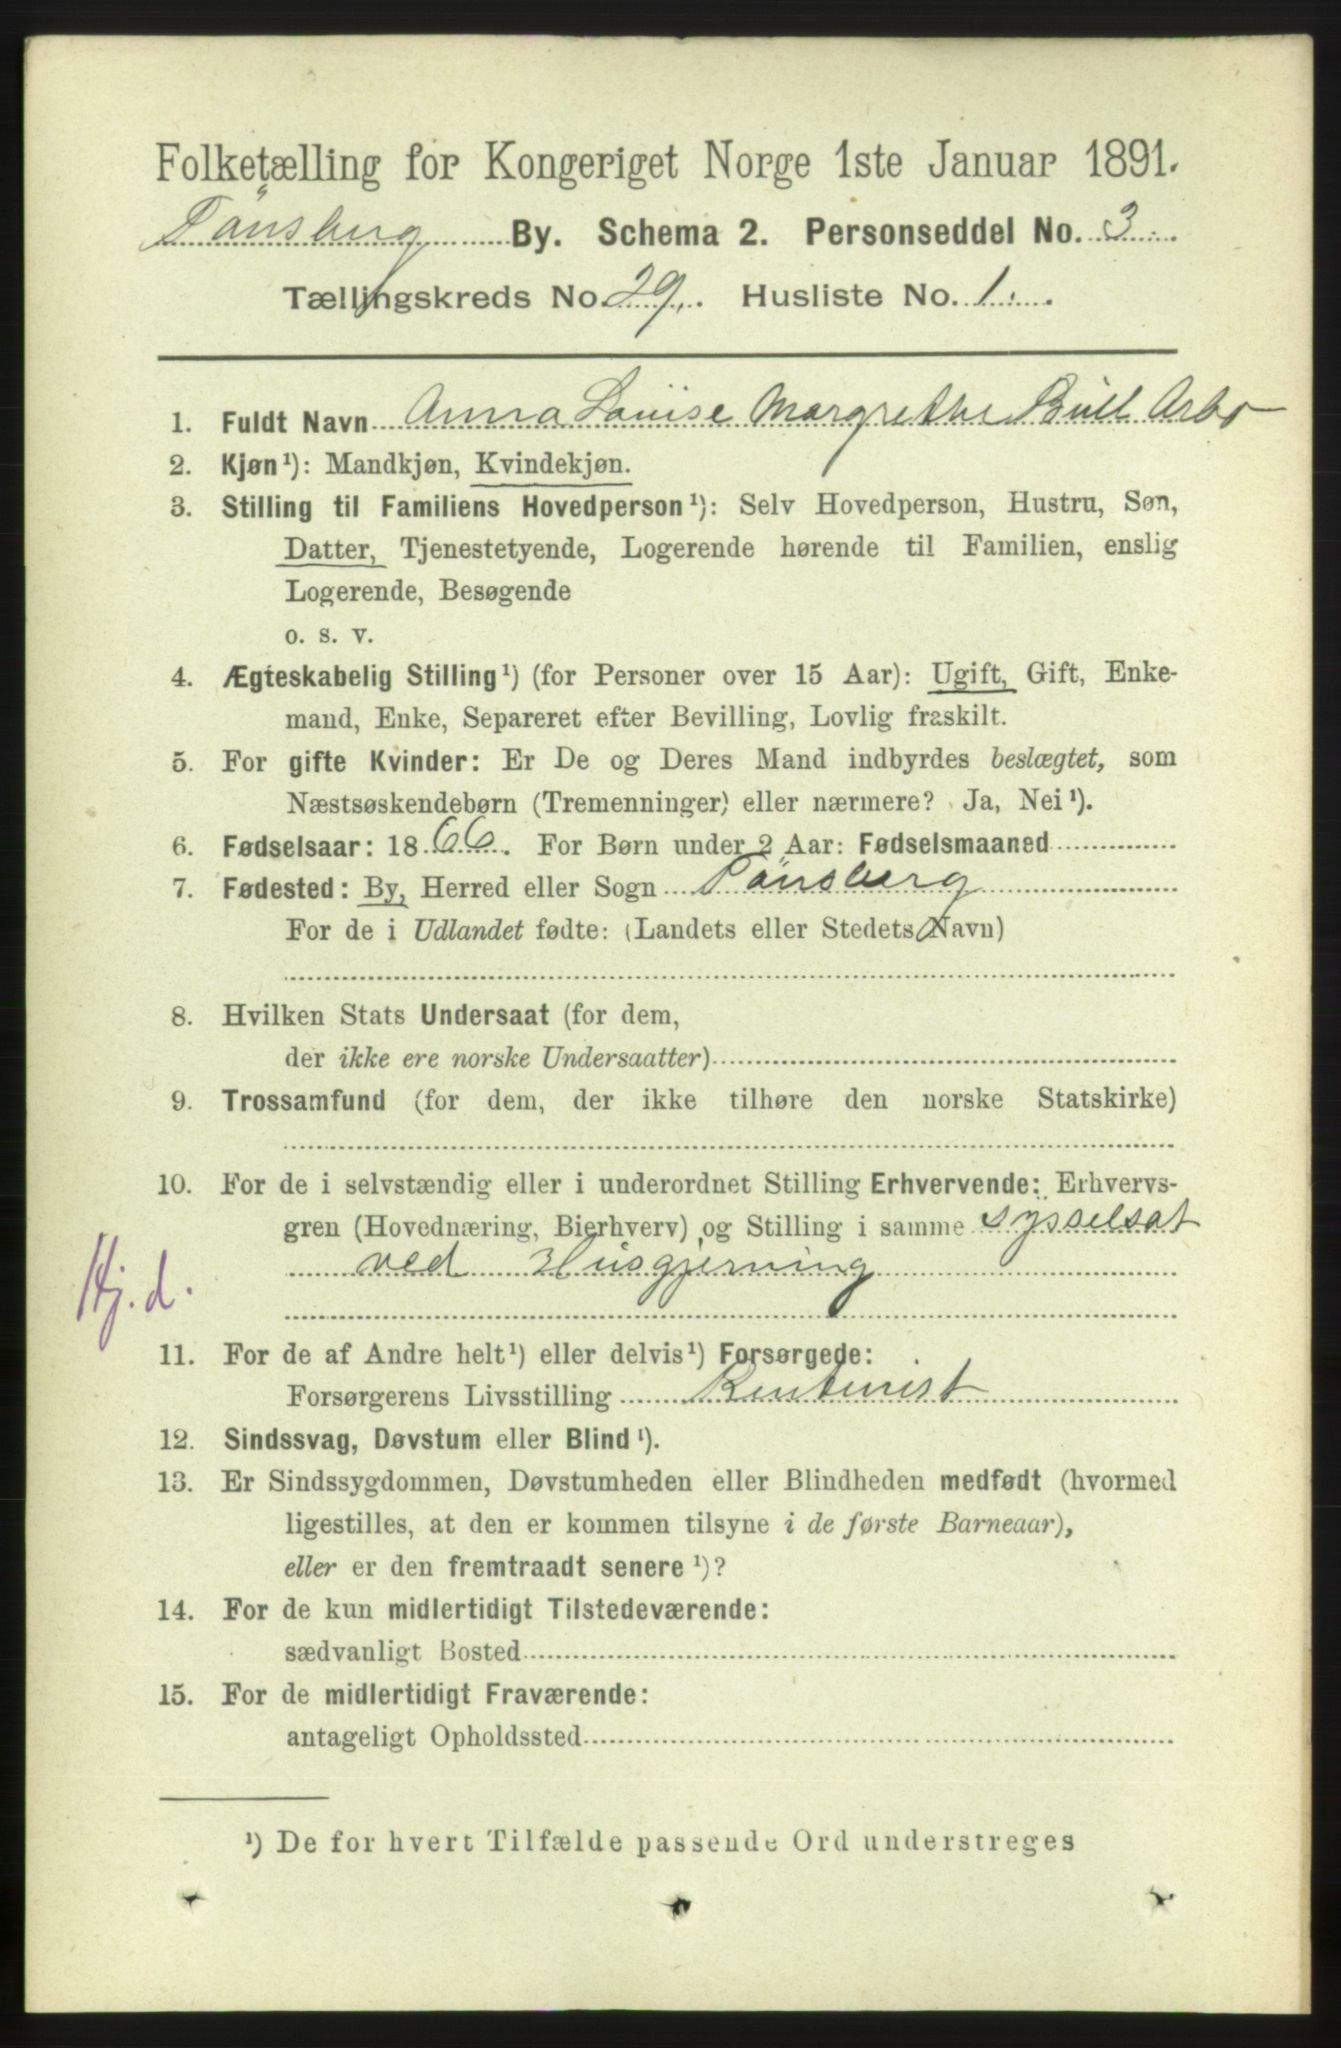 Folketælling for Kongeriget Norge 1ste Januar 1891.
Tønsberg By. Schema 2. Personseddel No. 3.
Tællingskreds No. 29. Husliste No. 1.
1. Fuldt Navn Anna Louise Margrethe Bull Arbo
2. Kjøn¹): Mandkjøn, Kvindekjøn.
3. Stilling til Familiens Hovedperson¹): Selv Hovedperson, Hustru, Søn,
Datter, Tjenestetyende, Logerende hørende til Familien, enslig
Logerende, Besøgende
o. s. v.
4. Ægteskabelig Stilling¹) (for Personer over 15 Aar): Ugift, Gift, Enke-
mand, Enke, Separeret efter Bevilling, Lovlig fraskilt.
5. For gifte Kvinder: Er De og Deres Mand indbyrdes beslægtet, som
Næstsøskendebørn (Tremenninger) eller nærmere? Ja, Nei¹).
6. Fødselsaar: 1866. For Børn under 2 Aar: Fødselsmaaned
7. Fødested: By, Herred eller Sogn Tønsberg
For de i Udlandet fødte: (Landets eller Stedets Navn)
8. Hvilken Stats Undersaat (for dem,
der ikke ere norske Undersaatter)
9. Trossamfund (for dem, der ikke tilhøre den norske Statskirke)
10. For de i selvstændig eller i underordnet Stilling Erhvervende: Erhvervs-
gren (Hovednæring, Bierhverv) og Stilling i samme sysselsat
ved Husgjerning
Hj. d.
11. For de af Andre helt¹) eller delvis¹) Forsørgede:
Forsørgerens Livsstilling Rentenist
12. Sindssvag, Døvstum eller Blind¹).
13. Er Sindssygdommen, Døvstumheden eller Blindheden medfødt (hvormed
ligestilles, at den er kommen tilsyne i de første Barneaar),
eller er den fremtraadt senere¹)?
14. For de kun midlertidigt Tilstedeværende:
sædvanligt Bosted
15. For de midlertidigt Fraværende:
antageligt Opholdssted
¹) De for hvert Tilfælde passende Ord understreges